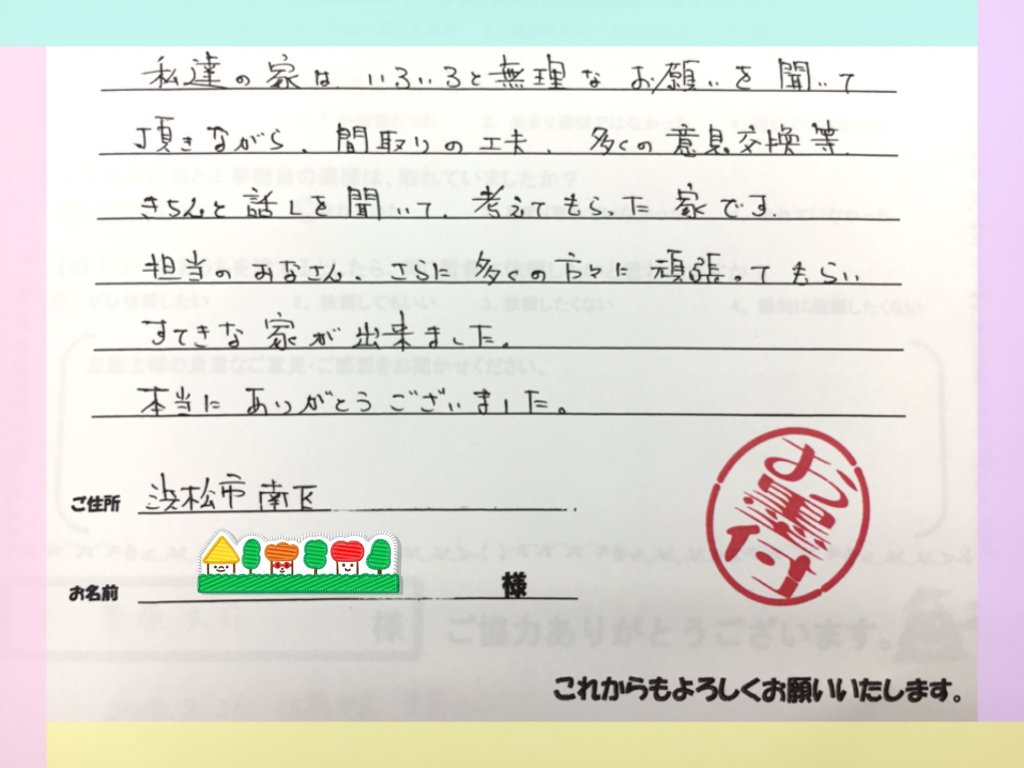 私達の家は、いろいろと無理なお願いを聞いて
頂きながら、間取りの工夫、多くの意見交換等、
きちんと話しを聞いて、考えてもらった家です
担当のおなさん、さらに多くの方々に頑張ってもらい
すてきな家が出来ました。
本当にありがとうございました。
ご住所 浜松市南区
お名前 様
お墨付
これからもよろしくお願いいたします。
ご協力ありがとうございます。